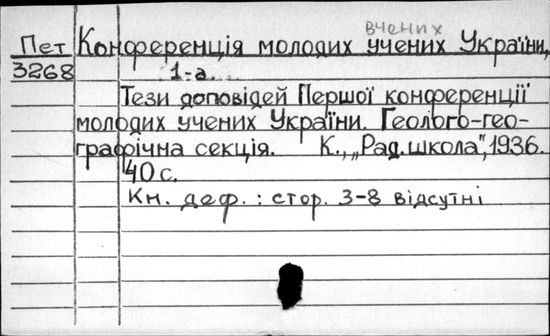 вчених
Пет Конференція молодих учених України,
3268 1-а.
Тези доповідей Першої конференції
молодих учених України. Геолого-гео-
графічна секція. К., „Рад.школа", 1936.
40 с.
Кн. деф.: стор. 3-8 відсутні